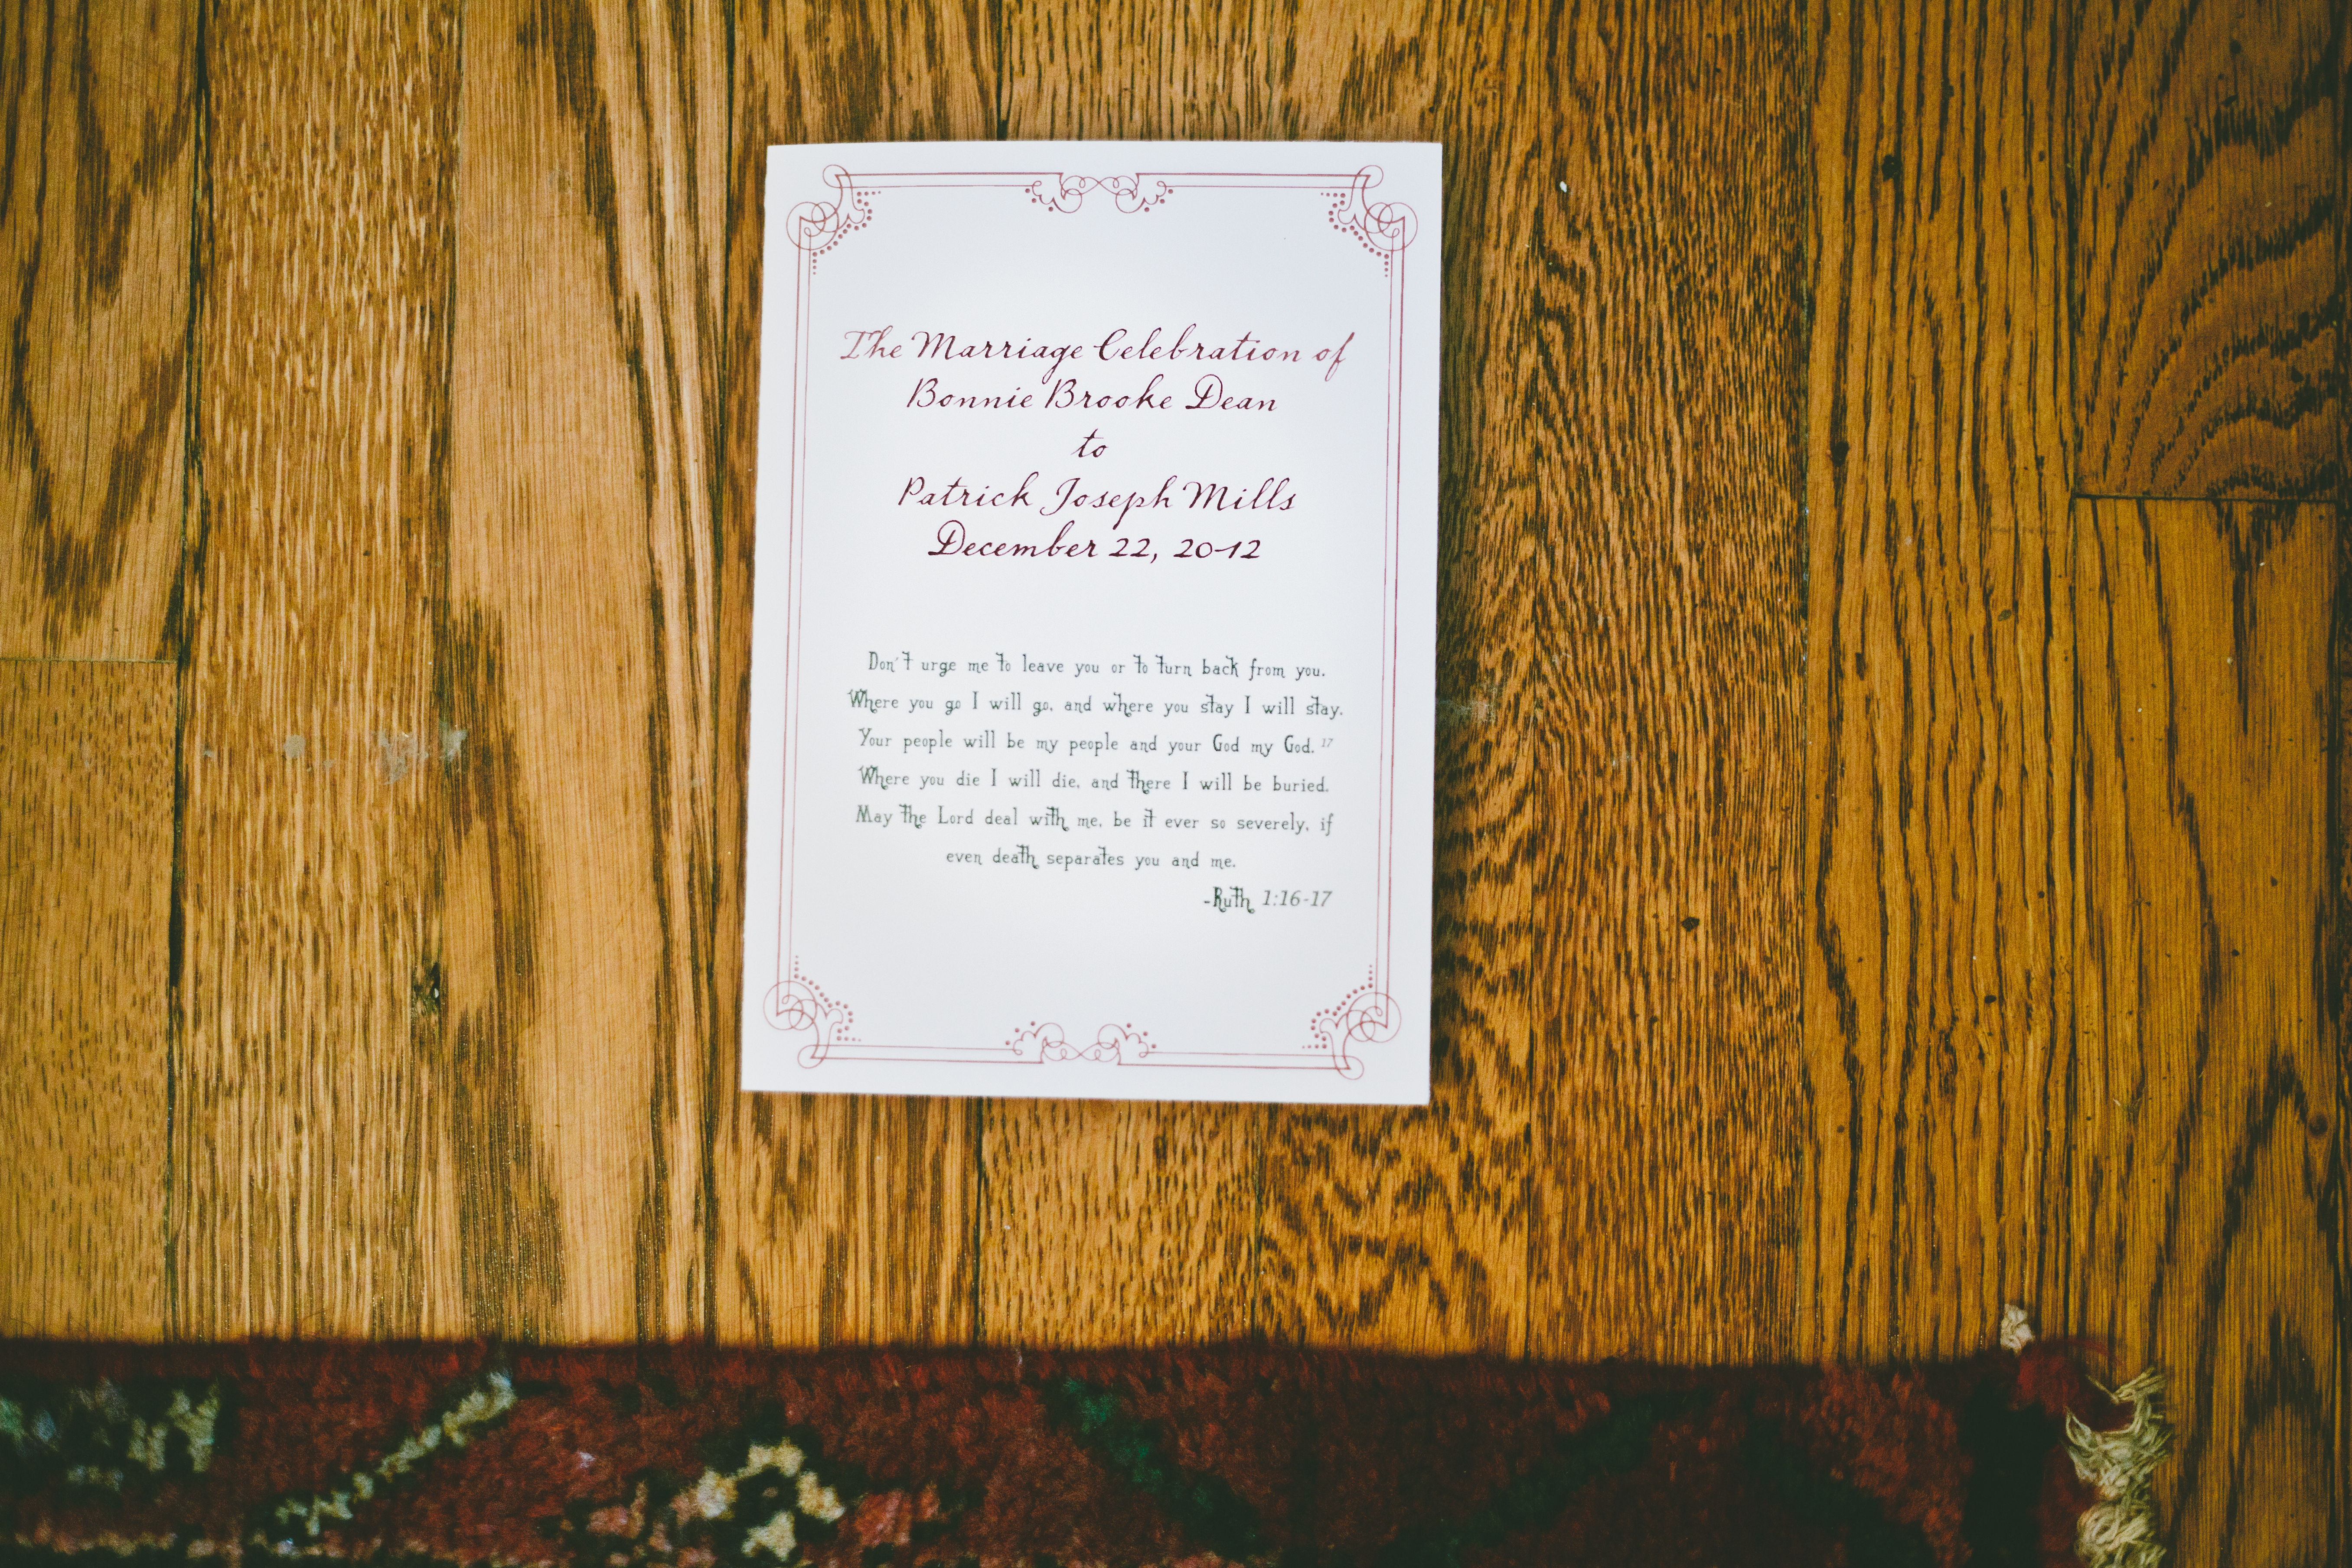 The Marriage Celebration of
Bonnie Brooke Dean
to
Patrick Joseph Mills
December 22, 2012
Don't urge me to leave you or to turn back from you.
Where you go I will go, and where you stay I will stay.
Your people will be my people and your God my God. 17
Where you die I will die, and there I will be buried.
May the Lord deal with me, be it ever so severely, if
even death separates you and me.
-Ruth 1:16-17